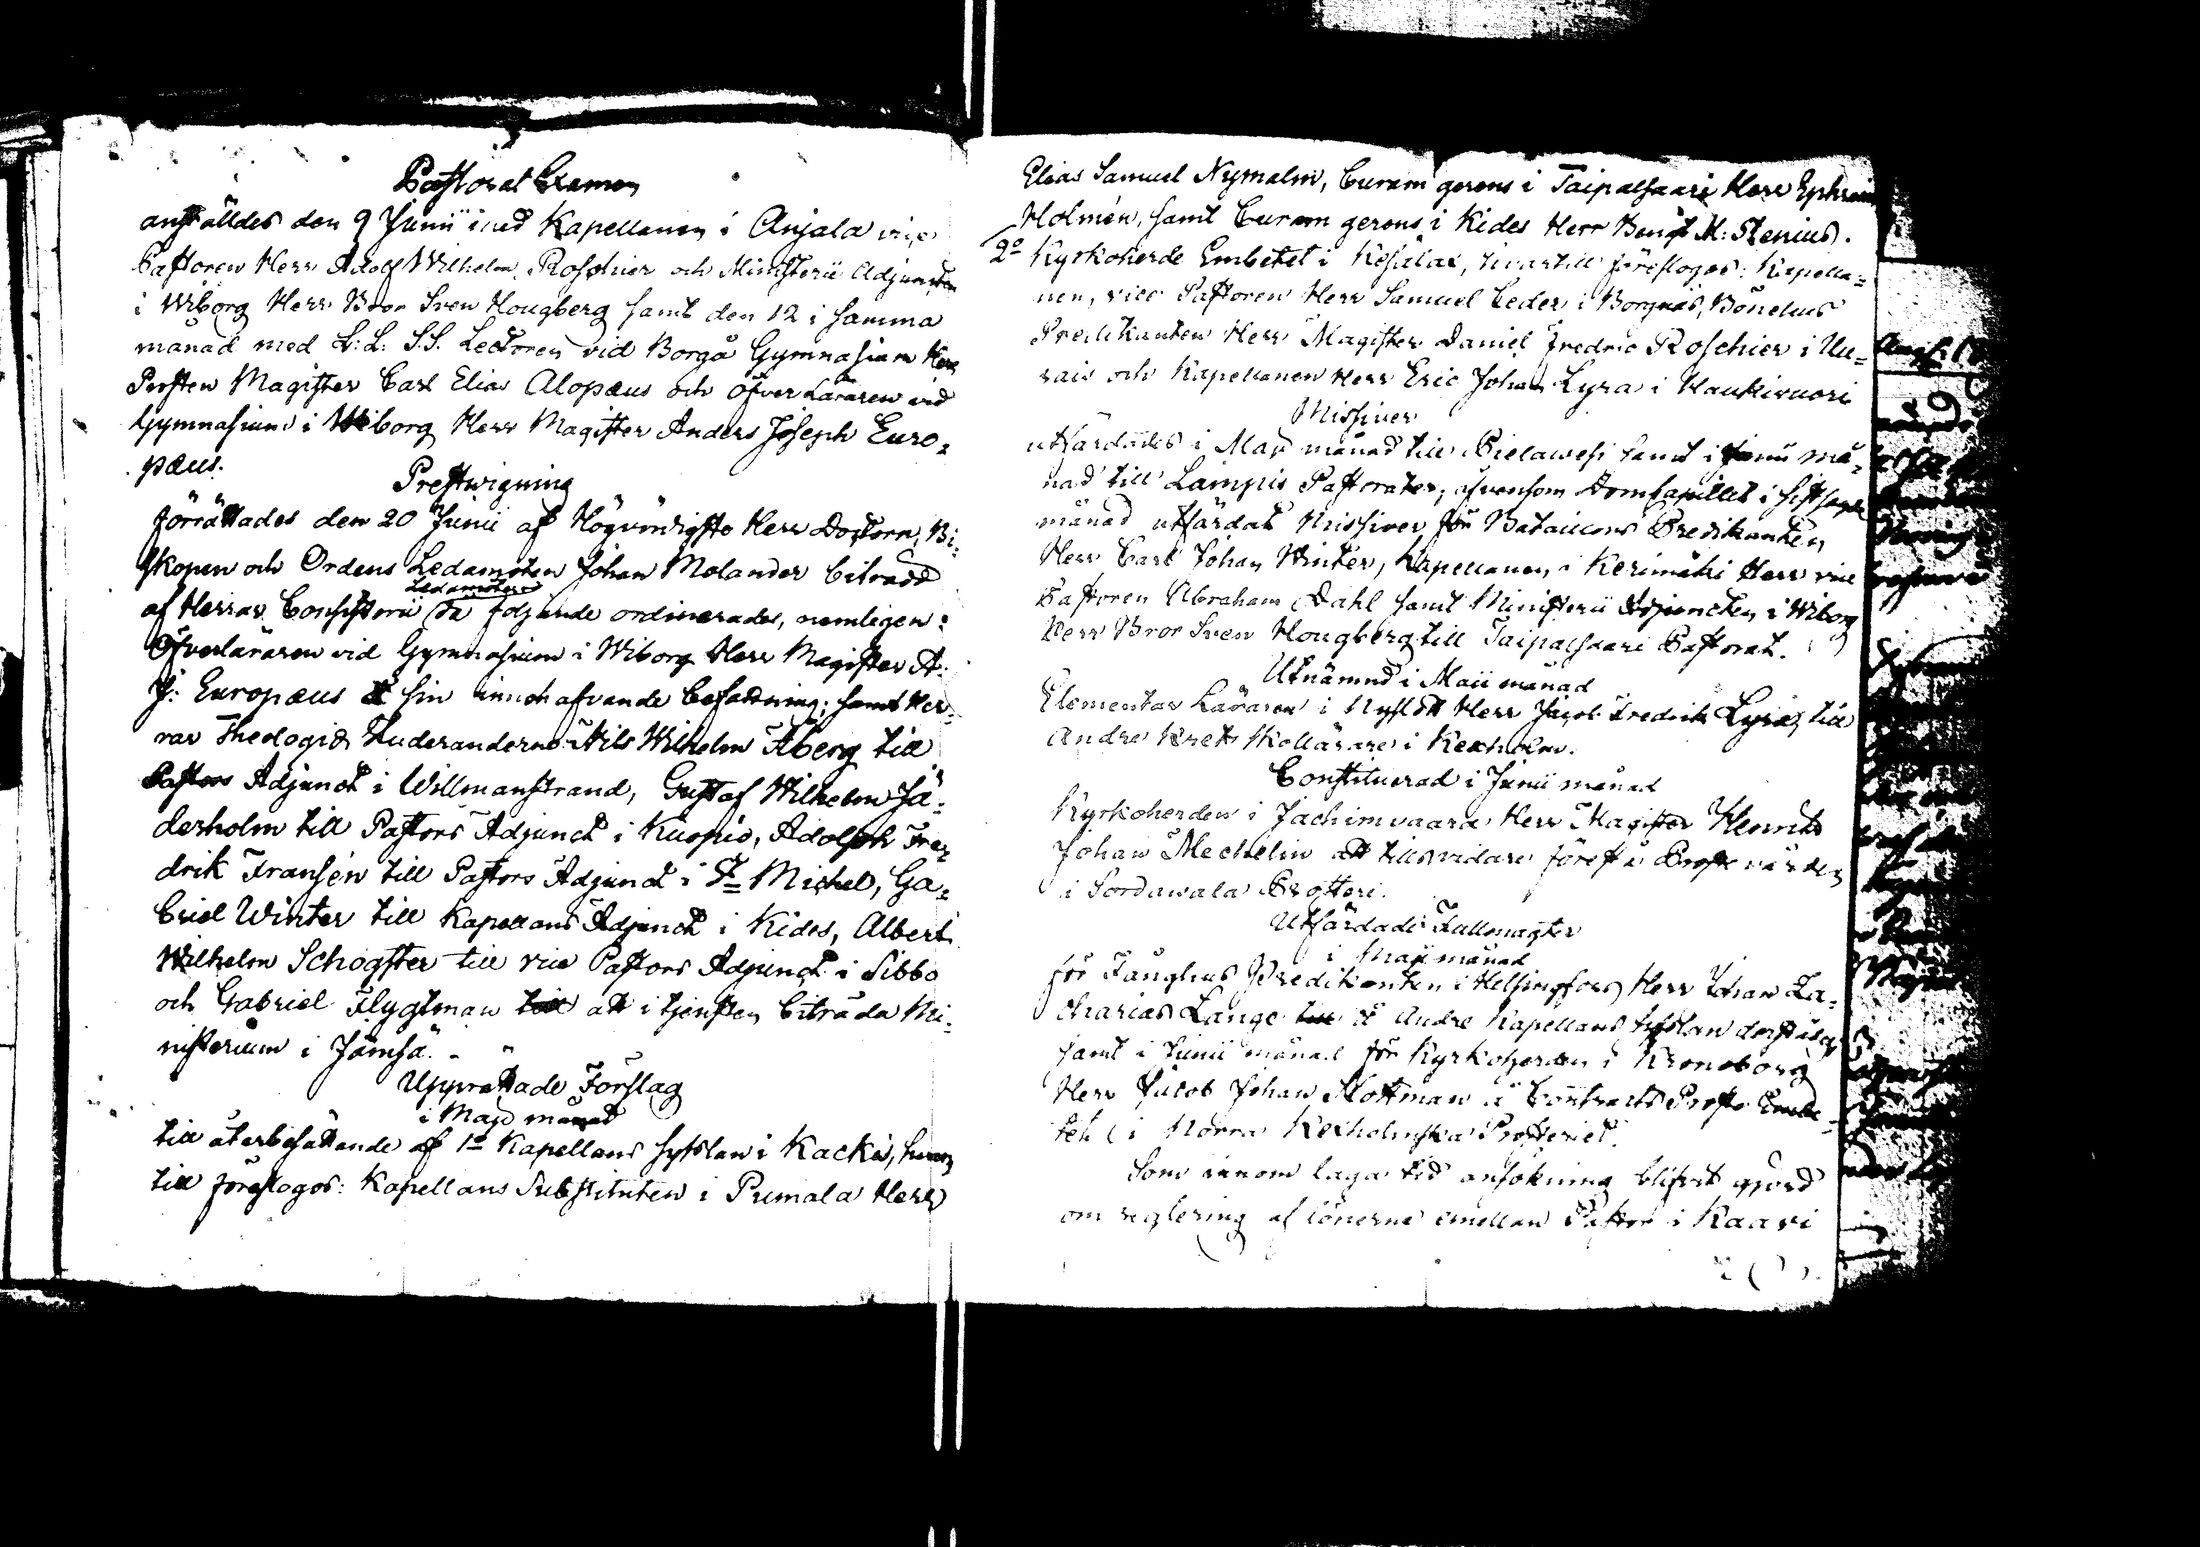 Pastoral Examen
anställdes den 9 Junii med Kapellanen i Anjala vice
Pastoren Herr Adolf Wilhelm Roschier och Ministerii Adjuncten
i Wiborg Herr Bror Sven Hougberg samt den 12 i samma
månad med L: L: S.S. Lectoren vid Borgå Gymnasium Herr
Prosten Magister Carl Elias Alopæus och Öfverläraren vid
Gymnasium i Wiborg Herr Magister Anders Joseph Euro=
pæus.
Prestwigning
förrättades den 20 Junii af Högvördigste Herr Doctorn, Bi=
skopen och Ordens Ledamoten Johan Molander biträdd
Ledamöter
af Herrar Consistorii då följande ordinerades, nemligen:
Öfverläraren vid Gymnasium i Wiborg Herr Magister A:
J: Europæus å sin innehafvande befattning; samt Her=
rar Theologiæ Studeranderne Nils Wilhelm Åberg till
Pastors Adjunct i Willmanstrand, Gustaf Wilhelm Sö=
derholm till Pastors Adjunct i Kuopio, Adolph Fre=
drik Fransén till Pastors Adjunct i St Michel, Ga=
briel Winter till Kapellans Adjunct i Kides, Albert
Wilhelm Schogster till vice Pastors Adjunct i Sibbo
och Gabriel Flygtman till att i tjensten biträda Mi=
nisterium i Jämsä.
Upprättade Förslag
i Maji månad
till återbesättande af 1o Kapellans sysslan i Kackis, hvar
till föreslogos: Kapellans Substituten i Pumala Herr
Elias Samuel Nymalm, Curam gerens i Taipalsaari Herr Ephraim
Holmén, samt Curam gerens i Kides Herr Bengt M: Stenius.
2o Kyrkoherde Embetet i Kesälax, hvartill föreslogos: Kapella=
nen, vice Pastoren Herr Samuel Ceder i Borgnäs, Bönehus
Predikanten Herr Magister Daniel Fredric Roschier i Uu=
rais och Kapellanen Herr Eric Johan Lyra i Haukivuori
Missiver
utfärdades i Maji månad till Pielawesi samt i Junii må=
nad till Lampis Pastorater; äfvensom Domkapitlet i
månad utfärdat Missiver för Bataillons Predikanten
Herr Carl Johan Winter, Kapellanen i Kerimäki Herr vice
Pastoren Abraham Dahl samt Ministerii Adjuncten i Wiborg
Herr Bror Sven Hougberg till Taipalsaari Pastorat.
Utnämnd i Maii månad
Elementar Läraren i Nyslott Herr Jacob Fredrik Lyra, till
andre Krets Skollärare i Kexholm.
Constituerad i Junii månad
Kyrkoherden i Jachimvaara Herr Magister Henrik
Johan Mechelin att tillsvidare förestå Prostevården
i Sordawala Prosteri.
Utfärdade Fullmagter
i Maji månad
för Fånghus Predikanten i Helsingfors Herr Johan Za=
charias Lange till å Andre Kapellans sysslan derstädes
samt i Junii månad för Kyrkoherden i Kroneborg
Herr Jacob Johan Hottman å Contracts Prosts Embe=
tet i Norra Kexholmska Prosteriet.
Som innom laga tid ansökning blifvit gjord
om reglering af lönerne emellan Pastor i Kaavi